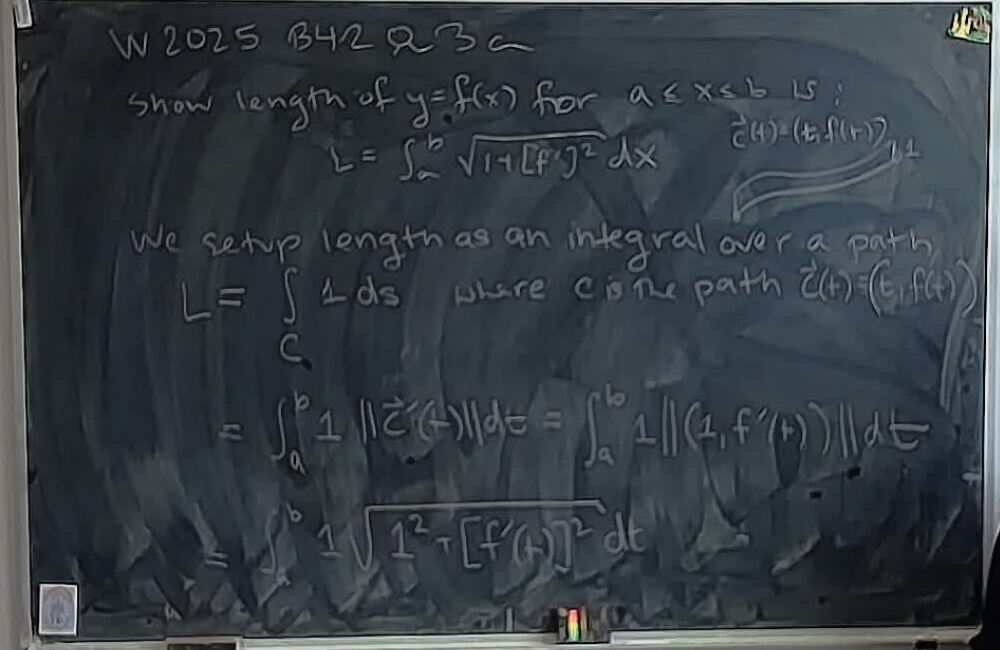 W 2025 B42 Q3a
Show length of y=f(x) for a ≤ x ≤ b is:
L = ∫_a^b √(1+[f']²) dx
c⃗(t)=(t, f(t))
1
We setup length as an integral over a path,
L = ∫_C 1 ds where c is the path c⃗(t)=(t, f(t))
= ∫_a^b 1 ||c⃗'(t)|| dt = ∫_a^b 1 ||(1, f'(t))|| dt
= ∫_a^b 1 √(1² + [f'(t)]²) dt